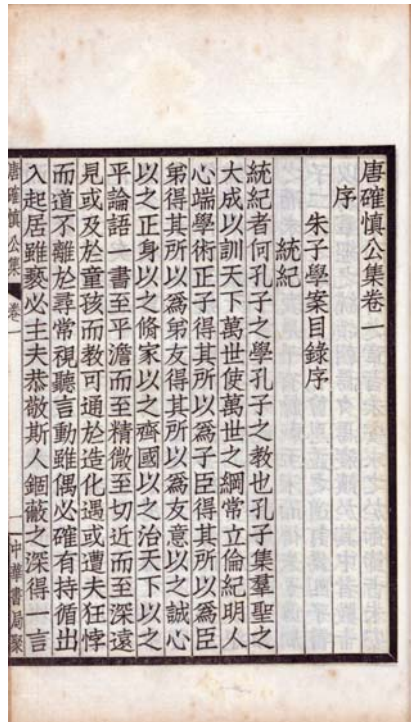 唐確慎公集卷一
序
朱子學案目錄序
統紀
統紀者何孔子之學孔子之教也孔子集羣聖之
大成以訓天下萬世使萬世之綱常立倫紀明人
心端學術正子得其所以爲子臣得其所以爲臣
弟得其所以爲弟友得其所以爲友意以之誠心
以之正身以之脩家以之齊國以之治天下以之
平論語一書至平澹而至精微至切近而至深遠
見或及於童孩而教可通於造化遇或遭夫狂悖
而道不離於尋常視聽言動雖偶必確有持循出
入起居雖褻必主夫恭敬斯人錮蔽之深得一言
唐確慎公集 卷一 中華書局聚